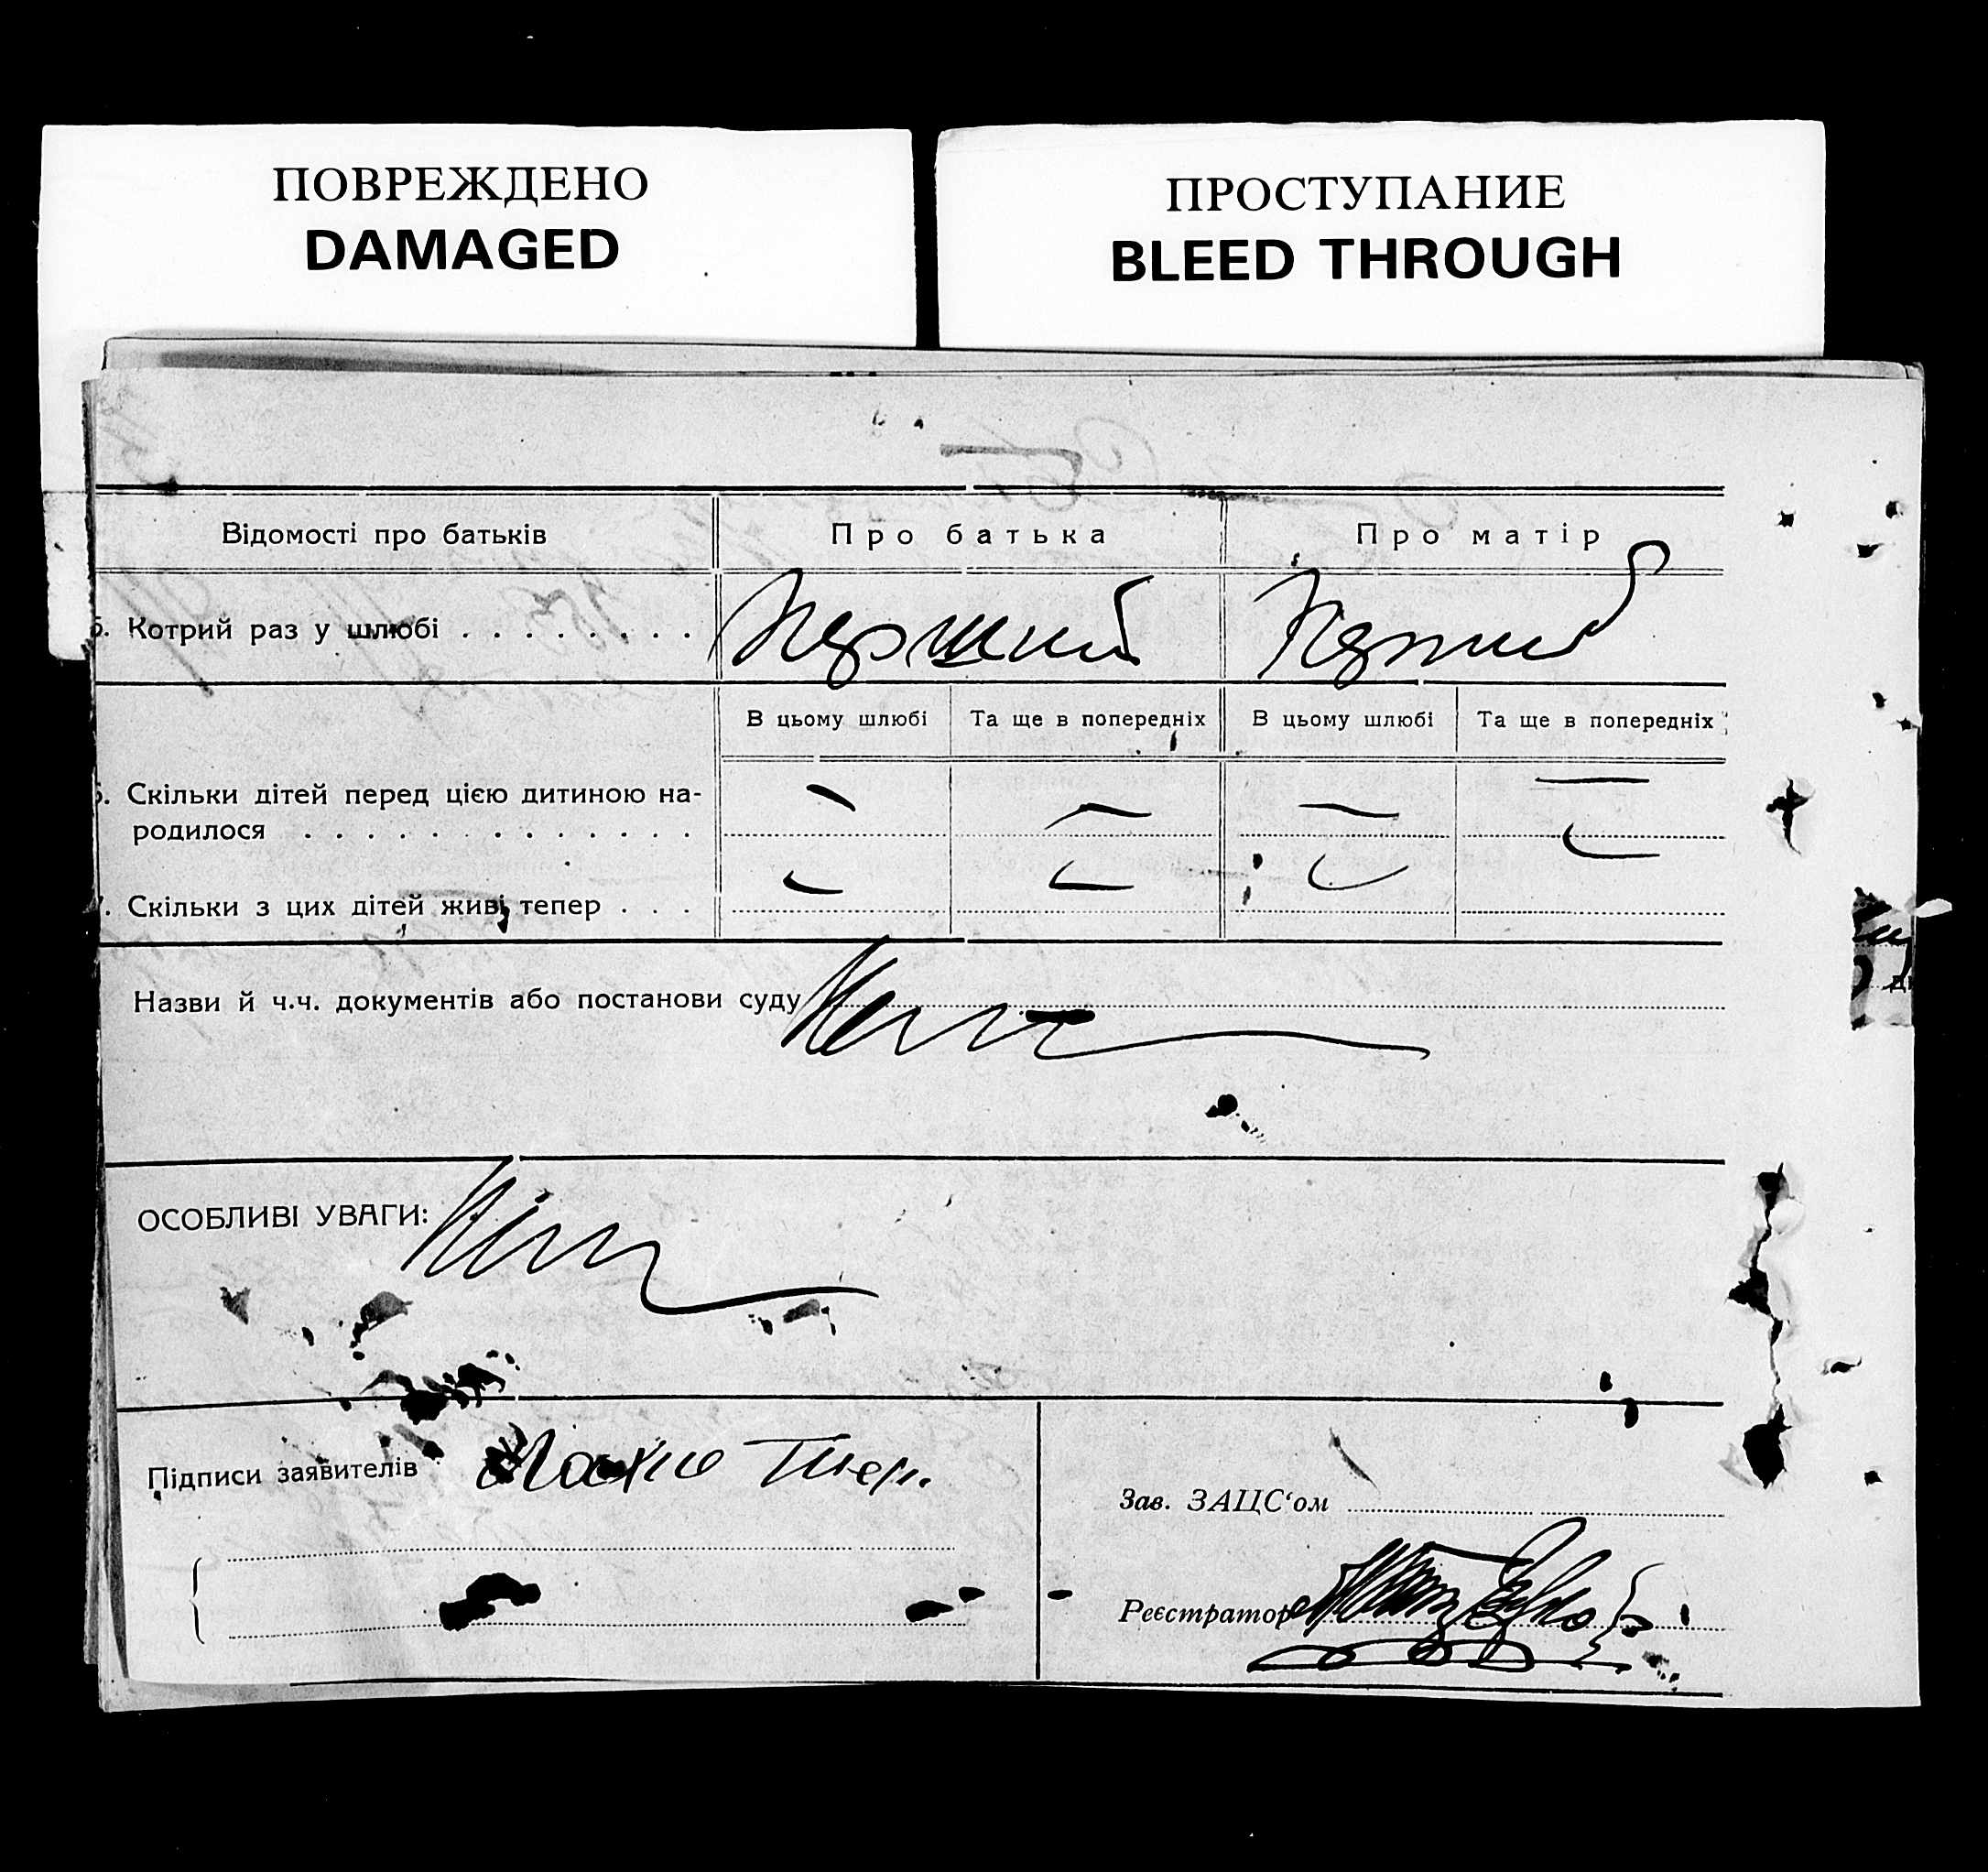 ПОВРЕЖДЕНО
DAMAGED
ПРОСТУПАНИЕ
BLEED THROUGH
Відомості про батьків
Про батька
Про матір
5. Котрий раз у шлюбі
Перший
Перший
В цьому шлюбі
Та ще в попередніх
В цьому шлюбі
Та ще в попередніх
6. Скільки дітей перед цією дитиною на-
родилося
7. Скільки з цих дітей живі тепер
Назви й ч.ч. документів або постанови суду
ОСОБЛИВІ УВАГИ:
Підписи заявителів
Зав. ЗАЦС'ом
Реєстратор